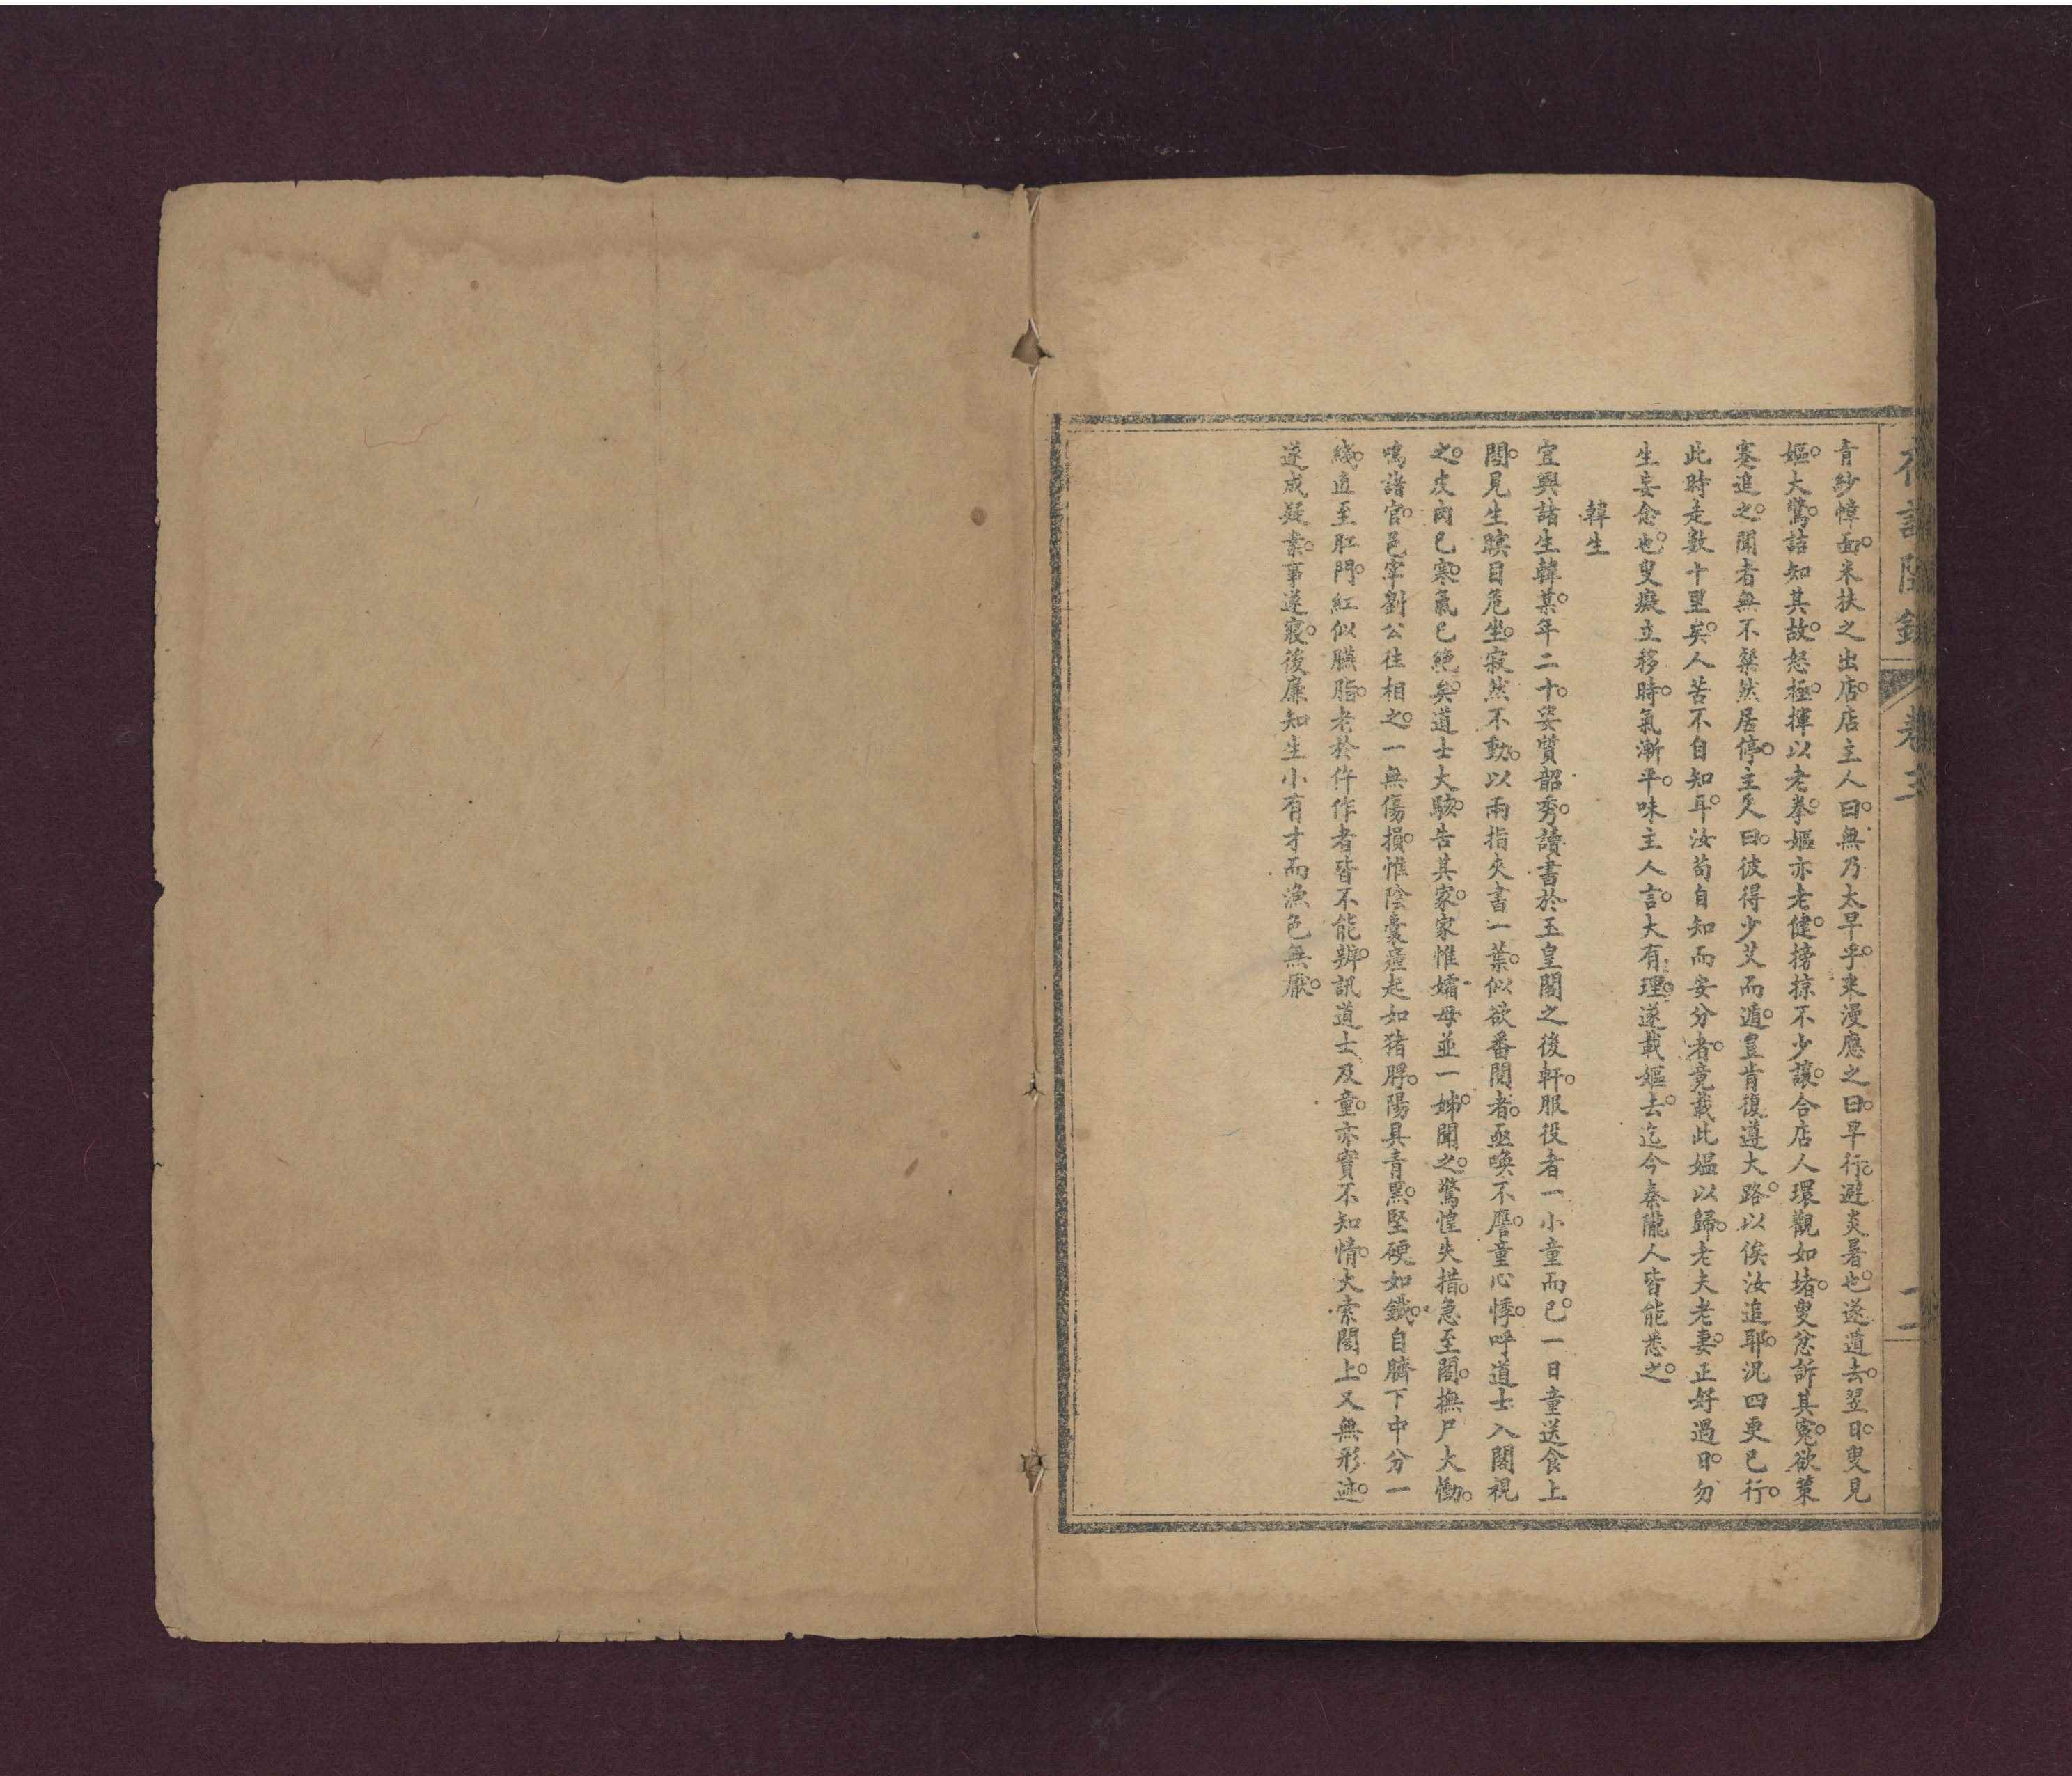 夜訪隨錄 卷三 二
青紗幛面米扶之出店店主人曰無乃太早乎米漫應之曰早行避炎暑也遂遁去翌日叟見
嫗大驚詰知其故怒極揮以老拳嫗亦老健搒掠不少讓合店人環觀如堵叟忿訴其寃欲策
蹇追之聞者無不粲然居停主人曰彼得少艾而遁豈肯復遵大路以俟汝追耶況四更已行
此時走數十里矣人苦不自知耳汝苟自知而安分者竟載此媪以歸老夫老妻正好過日勿
生妄念也叟癡立移時氣漸平味主人言大有理遂載嫗去迄今秦隴人皆能悉之
韓生
宜興諸生韓某年二十姿質韶秀讀書於玉皇閣之後軒服役者一小童而已一日童送食上
閣見生瞑目危坐寂然不動以兩指夾書一葉似欲番閱者亟喚不譍童心悸呼道士入閣視
之皮肉已寒氣已絶矣道士大駭告其家家惟孀母並一姊聞之驚惶失措急至閣撫尸大慟
鳴諸官邑宰劉公往相之一無傷損惟陰囊癟起如猪脬陽具青黑堅硬如鐵自臍下中分一
綫直至肛門紅似臙脂老於仵作者皆不能辨訊道士及童亦實不知情大索閣上又無形迹
遂成疑案事遂寢後廉知生小有才而漁色無厭